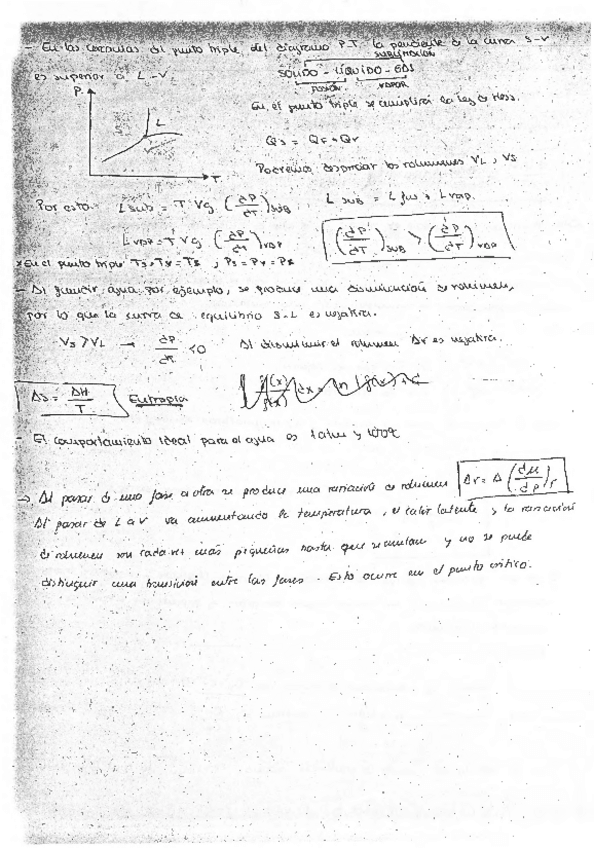 - En las cercanías del punto triple del diagrama P.T. la pendiente de la curva S-V
es superior a L-V.
SUBLIMACIÓN
SÓLIDO - LÍQUIDO - GAS
FUSIÓN VAPOR
P.
L
V
T
En el punto triple se cumplirá la ley de Hess.
Qs = QF + Qv
Podremos despreciar los volúmenes VL, VS
Por esto: L sub = T Vg (dP/dT)SUB L sub = L fus + L vap.
L VAP = T Vg (dP/dT)VAP (dP/dT)SUB > (dP/dT)VAP
* En el punto triple
- Al fundir agua por ejemplo, se produce una disminución de volumen,
por lo que la curva de equilibrio S-L es negativa.
Vs > VL → dP/dT < 0 Al disminuir el volumen Δv es negativa.
Δs = ΔH/T Entropía
- El comportamiento ideal para el agua es 1 atm y 100ºC
→ Al pasar de una fase a otra se produce una variación de volumen Δv = Δ (dμ/dP)T
Al pasar de L a V va aumentando la temperatura, el calor latente y la variación
de volumen son cada vez más pequeñas hasta que se anulan y no se puede
distinguir una transición entre las fases. Esto ocurre en el punto crítico.